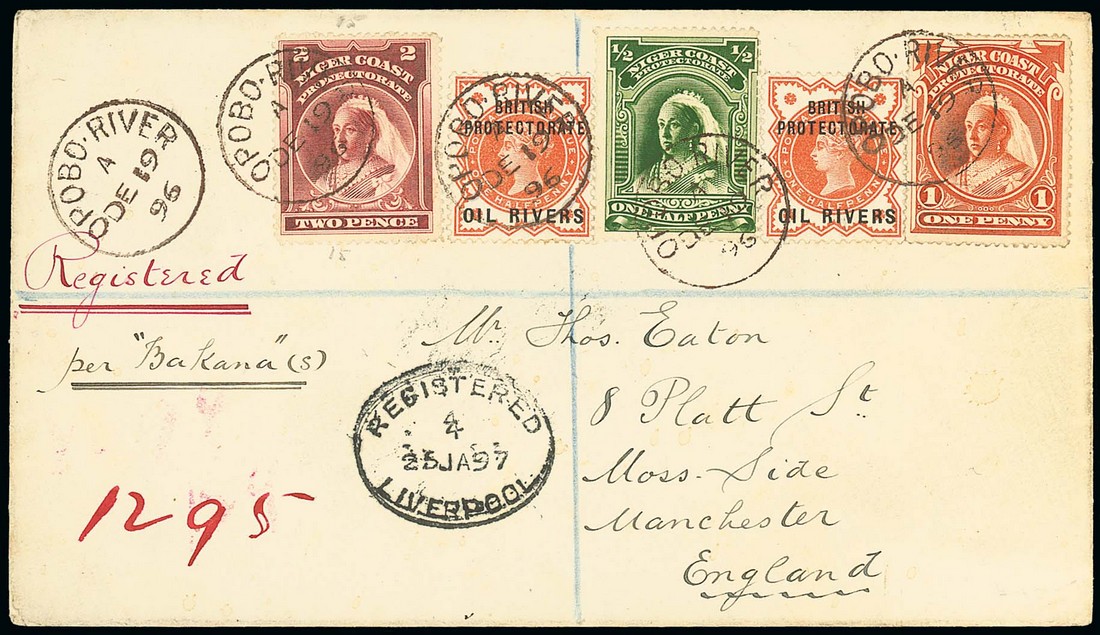 15
OPOBO·RIVER
A
DE 19
96
2 2
NIGER COAST
PROTECTORATE
TWO PENCE
OPOBO·RI
A
DE 19
96
15
BRITISH
PROTECTORATE
OIL RIVERS
OPOBO·RIVER
DE 19
96
1/2 1/2
NIGER COAST
PROTECTORATE
ONE HALF PENNY
BRITISH
PROTECTORATE
ONE HALFPENNY
OIL RIVERS
96
NIGER COAST
PROTECTORATE
1 1
ONE PENNY
OPOBO·RI
A
DE 19
96
Registered
per "Bakana" (s)
Mr Thos. Eaton
8 Platt St
Moss-Side
Manchester
England
REGISTERED
4
25JA97
LIVERPOOL
1295